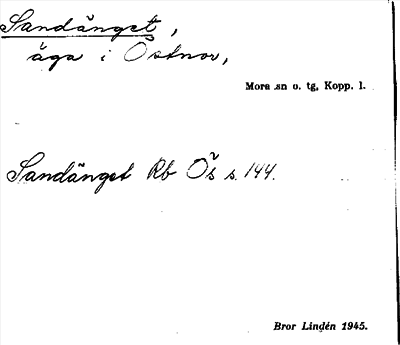 Sandänget,
äga i Östnor,
Mora sn o. tg, Kopp. l.
Sandänget Rb Ös s. 144.
Bror Lindén 1945.